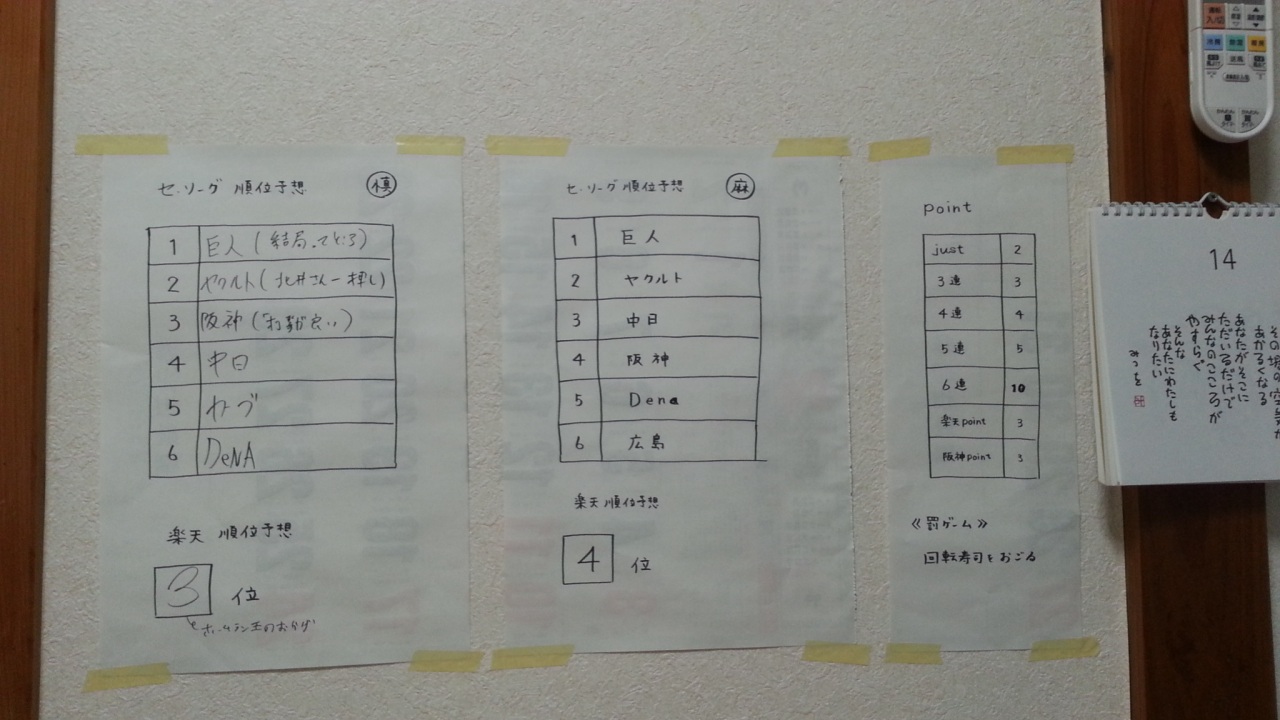 セ・リーグ 順位予想 慎
1 巨人(結局、でしょう)
2 ヤクルト(北井さん一押し)
3 阪神
4 中日
5 カープ
6 DeNA
楽天 順位予想
3 位
ホームラン王のおかげ
セ・リーグ 順位予想 麻
1 巨人
2 ヤクルト
3 中日
4 阪神
5 Dena
6 広島
楽天 順位予想
4 位
point
just 2
3連 3
4連 4
5連 5
6連 10
楽天point 3
阪神point 3
《罰ゲーム》
回転寿司をおごる
14
あかるくなる
あなたがそこに
ただいるだけで
みんなのこころが
やすらぐ
そんな
あなたにわたしも
なりたい
みつを